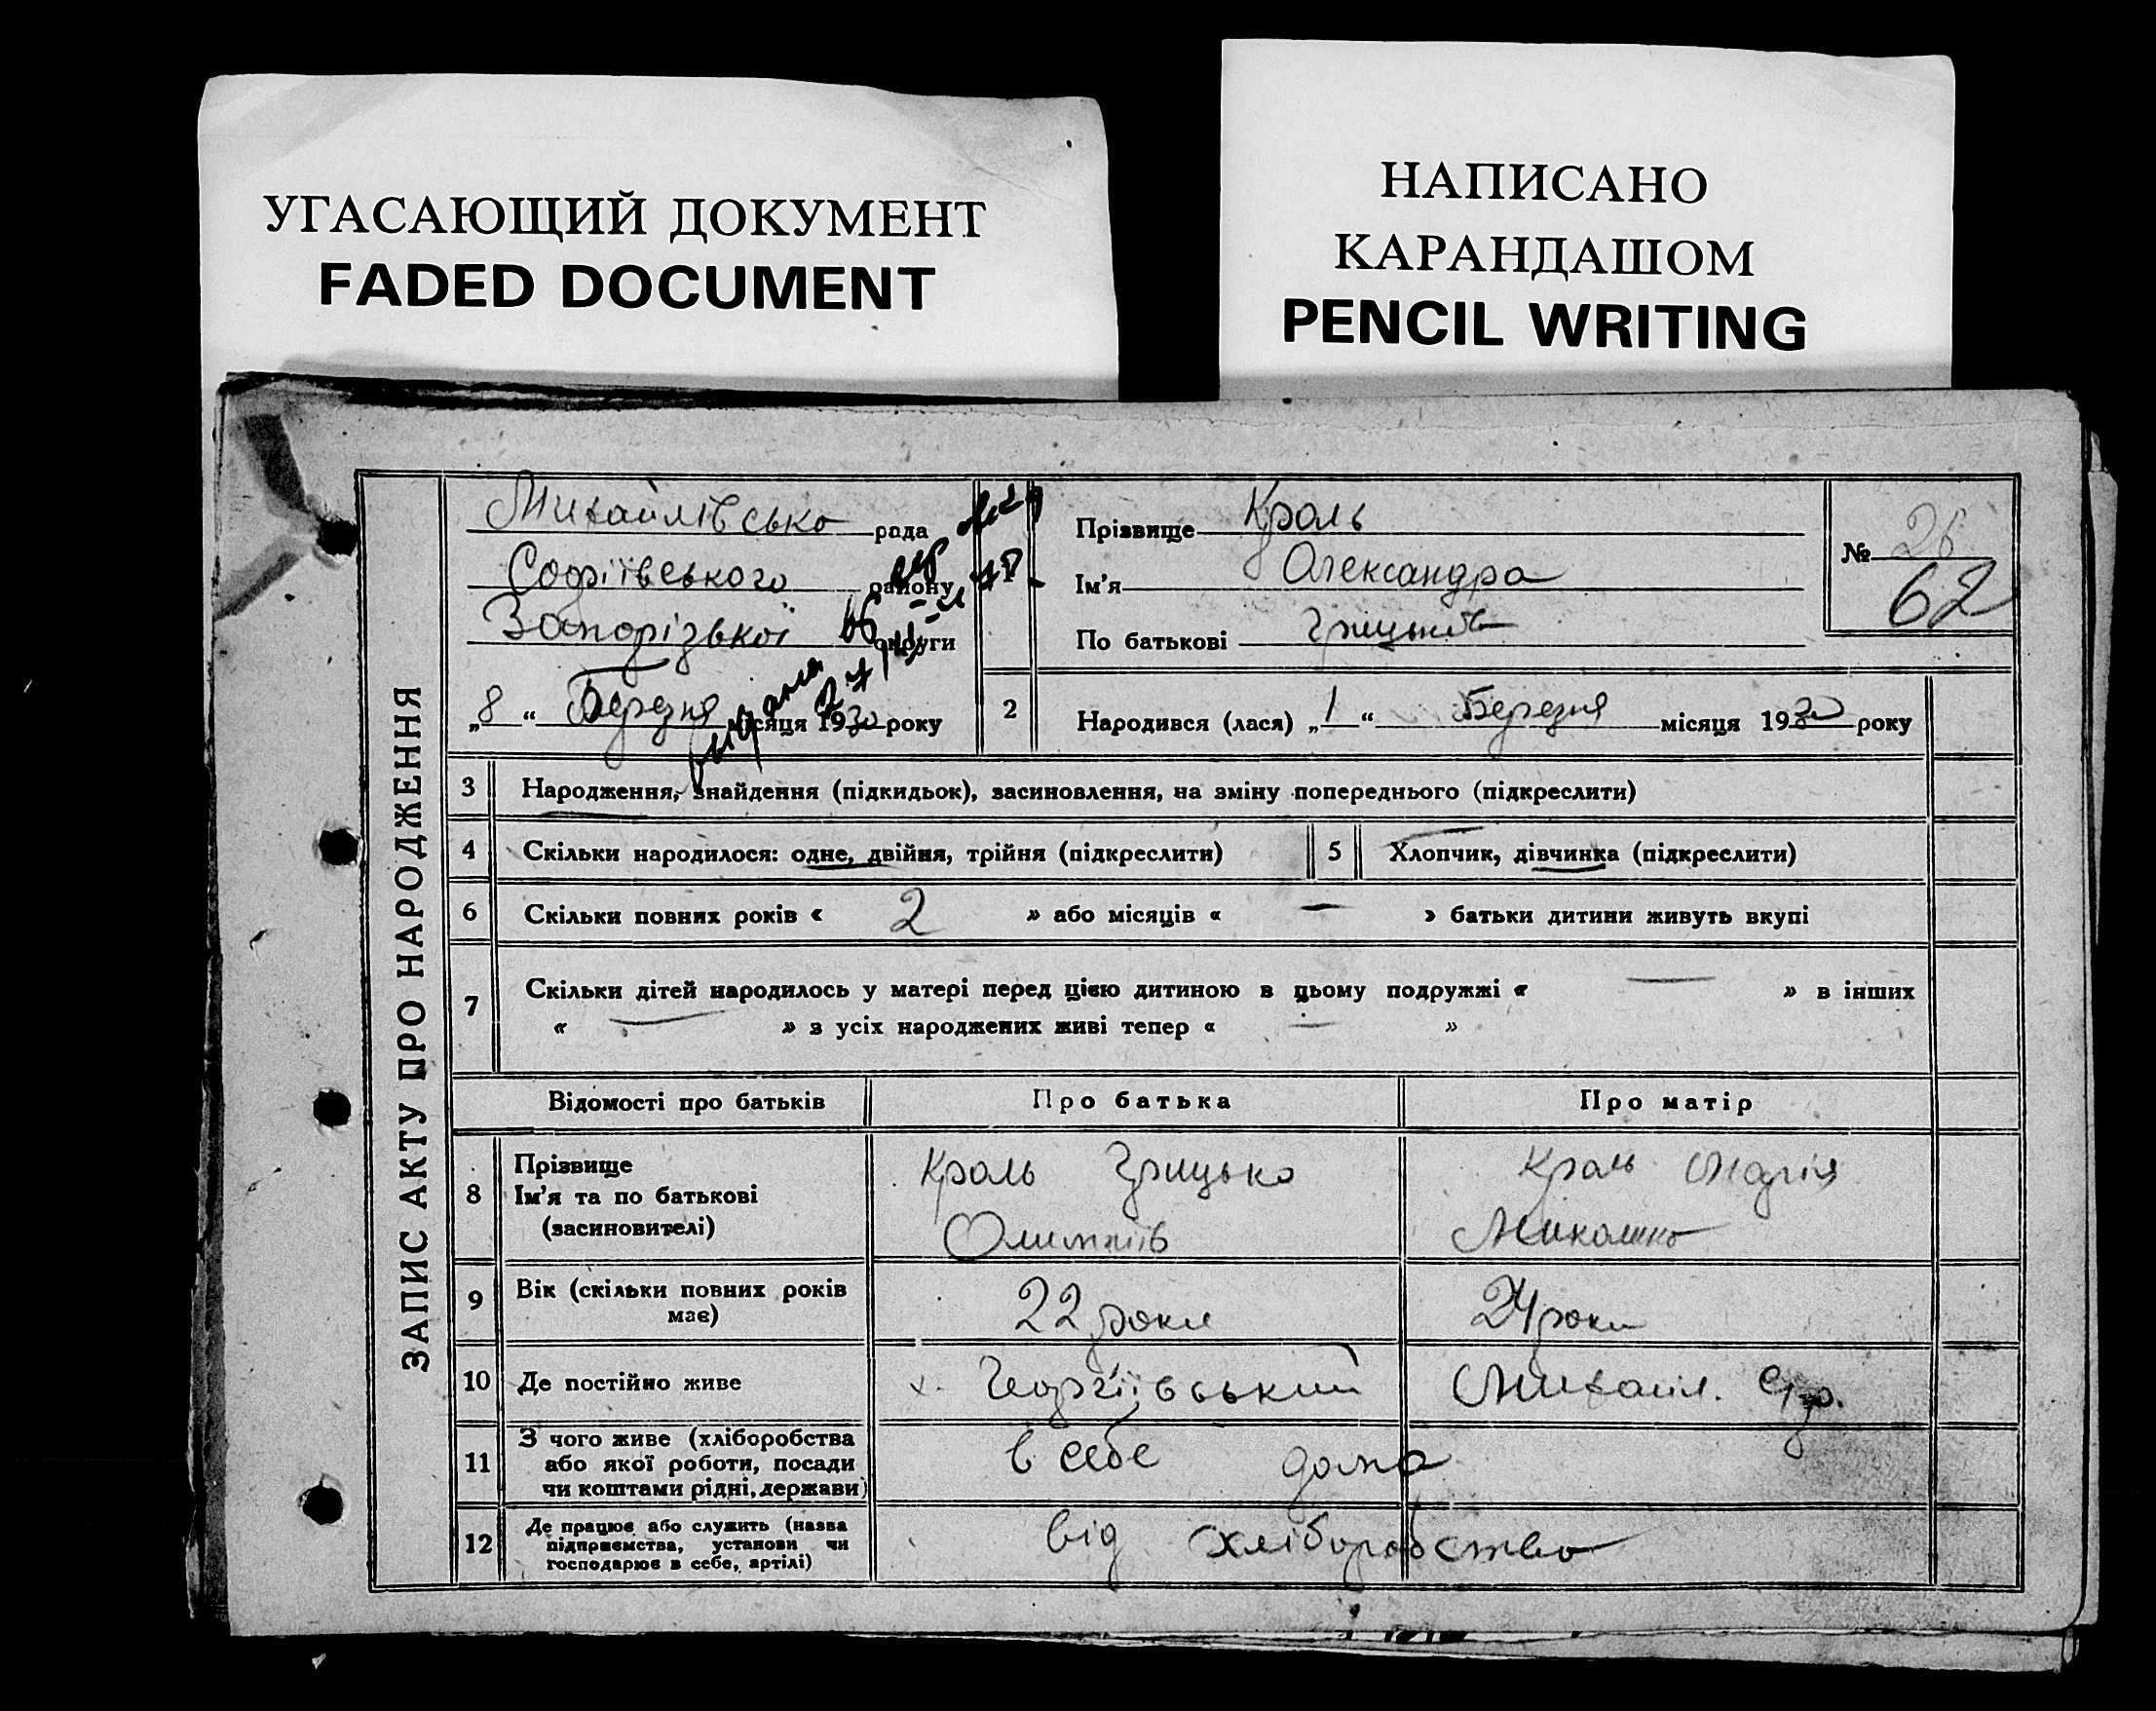 УГАСАЮЩИЙ ДОКУМЕНТ
FADED DOCUMENT
НАПИСАНО
КАРАНДАШОМ
PENCIL WRITING
ЗАПИС АКТУ ПРО НАРОДЖЕННЯ
Михайлівсько рада
Софіївського району
Запорізької округи
„8“ Березня місяця 1930 року
1
Прізвище Кроль
Ім'я Олександра
По батькові
№ 26
62
2 Народився (лася) „1“ Березня місяця 1930 року
3 Народження, знайдення (підкидьок), засиновлення, на зміну попереднього (підкреслити)
4 Скільки народилося: одне, двійня, трійня (підкреслити) 5 Хлопчик, дівчинка (підкреслити)
6 Скільки повних років « 2 » або місяців « — » батьки дитини живуть вкупі
7 Скільки дітей народилось у матері перед цією дитиною в цьому подружжі « — » в інших
« — » з усіх народжених живі тепер « — »
Відомості про батьків Про батька Про матір
8 Прізвище
Ім'я та по батькові
(засиновителі)
Кроль Грицько
Кроль Марія
9 Вік (скільки повних років
має)
22 роки
24 роки
10 Де постійно живе х. Георгіївський Михайл.
11 З чого живе (хліборобства
або якої роботи, посади
чи коштами рідні, держави)
в себе дома
12 Де працює або служить (назва
підприємства, установи чи
господарює в себе, артілі)
від хліборобство